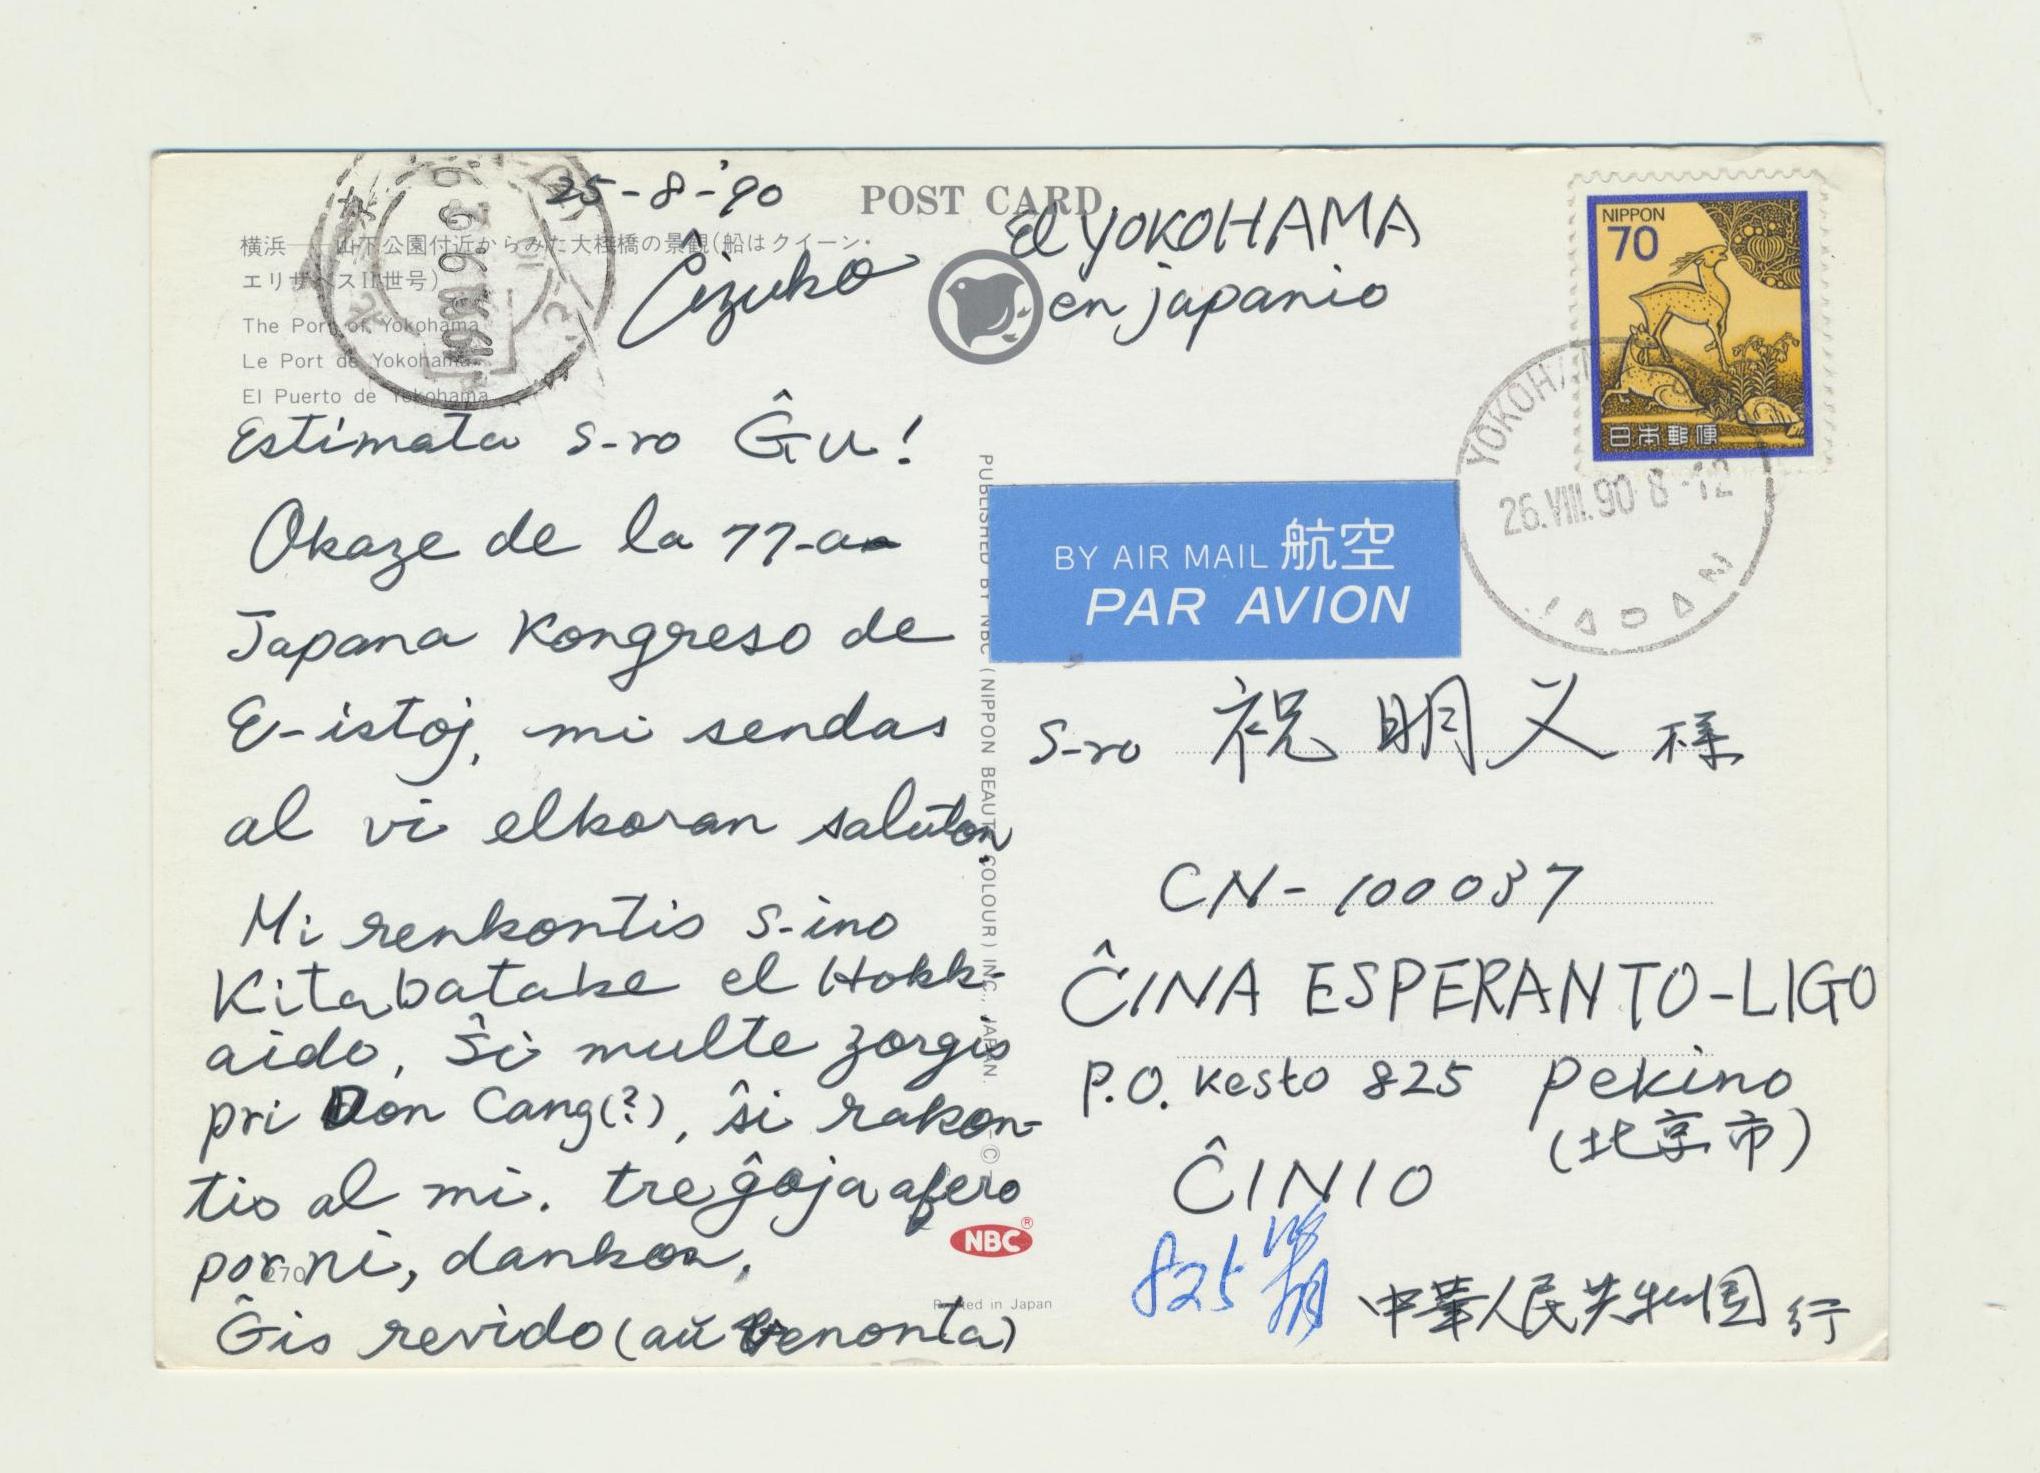 25-8-'90
POST CARD
El YOKOHAMA
en japanio
Ĉizuko
横浜——山下公園付近からみた大桟橋の景観(船はクイーン・
エリザベスII世号)
The Port of Yokohama
Le Port de Yokohama
El Puerto de Yokohama
Estimata s-ro Ĝu!
Okaze de la 77-a
Japana Kongreso de
E-istoj, mi sendas
al vi elkoran saluton.
Mi renkontis s-ino
Kitabatake el Hokk-
aido, Ŝi multe zorgis
pri Don Cang(?), ŝi rakon-
tis al mi. tre ĝoja afero
por ni, dankon,
Ĝis revido (aŭ venonta)
270
NBC®
Printed in Japan
PUBLISHED BY NBC (NIPPON BEAUTY COLOUR) INC., JAPAN. ©
NIPPON
70
日本郵便
YOKOHAMA
26.VIII.90 8-12
JAPAN
BY AIR MAIL 航空
PAR AVION
s-ro 祝明义 様
CN-100037
ĈINA ESPERANTO-LIGO
P.O. Kesto 825 Pekino
(北京市)
ĈINIO
825
中華人民共和国 行